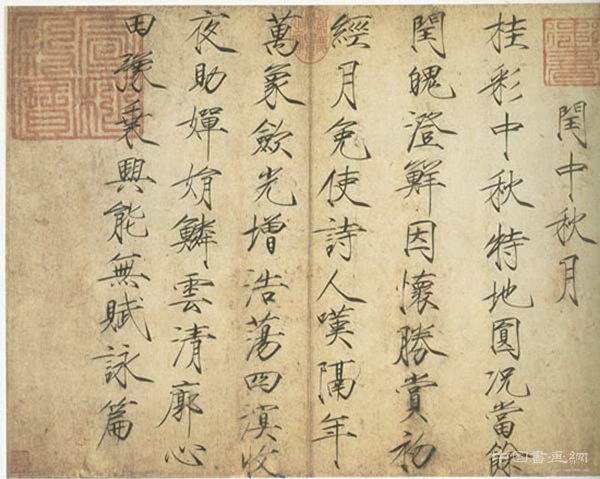 閏中秋月
桂彩中秋特地圓況當餘
閏魄澄鮮因懷勝賞初
經月免使詩人嘆隔年
萬象歛光增浩蕩四溟收
夜助嬋娟鱗雲清廓心
田豫乗興能無賦詠篇
中国書畫網